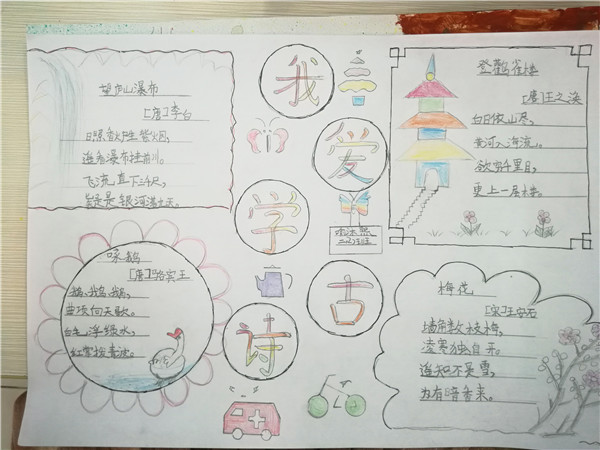 我
爱
学
古
诗
望庐山瀑布
[唐]李白
日照香炉生紫烟,
遥看瀑布挂前川。
飞流直下三千尺,
疑是银河落九天。
登鹳雀楼
[唐]王之涣
白日依山尽,
黄河入海流。
欲穷千里目,
更上一层楼。
咏鹅
[唐]骆宾王
鹅,鹅,鹅,
曲项向天歌。
白毛浮绿水,
红掌拨清波。
梅花
[宋]王安石
墙角数枝梅,
凌寒独自开。
遥知不是雪,
为有暗香来。